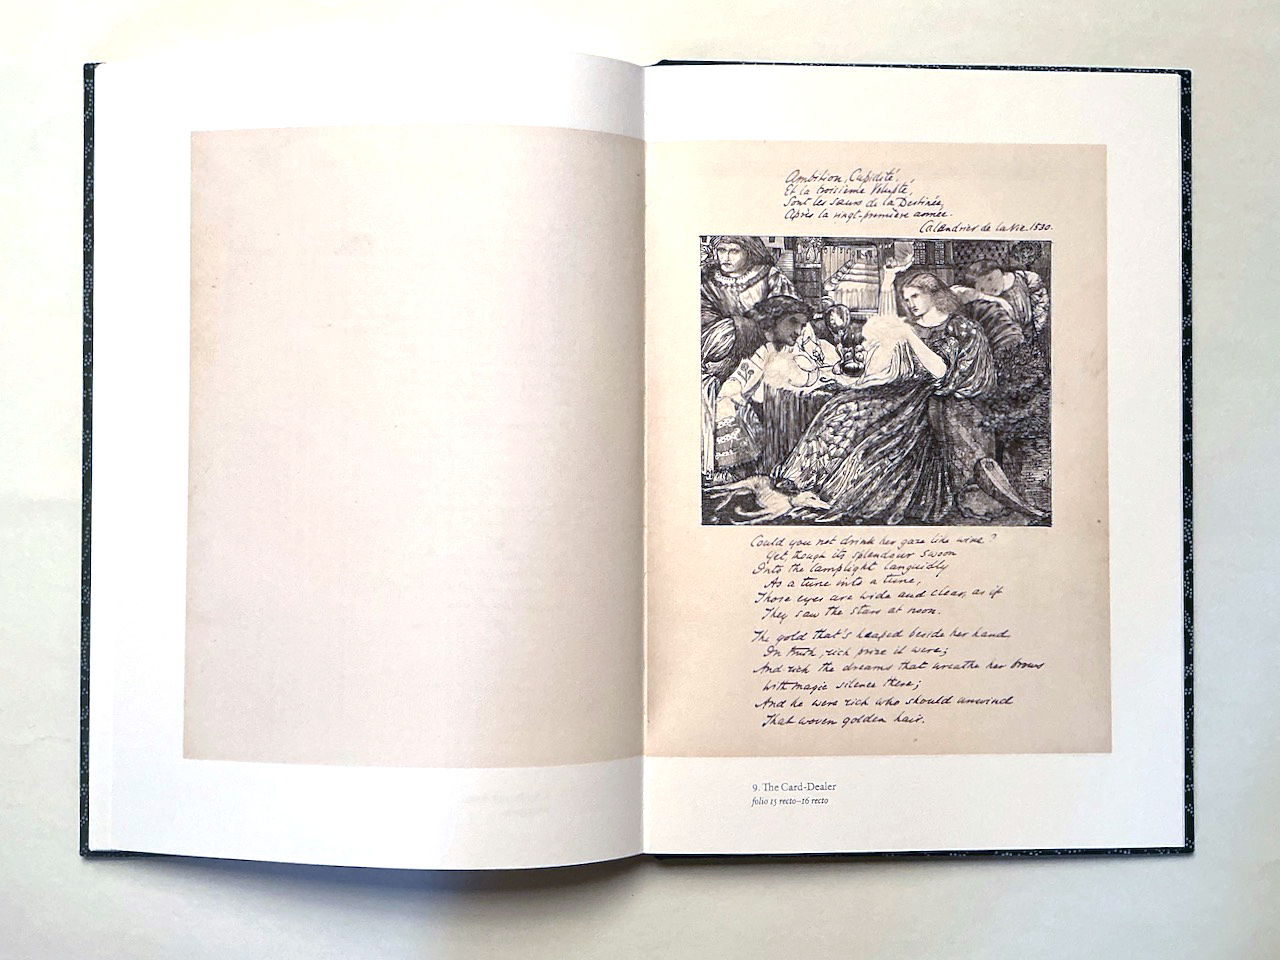 Ambition, Cupidité,
Et la troisième Volupté,
Sont les sœurs de la Destinée,
Après la vingt-première année.
Calendrier de la Vie. 1530.
Could you not drink her gaze like wine?
Yet, though its splendour swoon
Into the lamplight languidly
As a tune into a tune,
Those eyes are wide and clear, as if
They saw the stars at noon.
The gold that's heaped beside her hand,
In truth, rich prize it were;
And rich the dreams that wreathe her brows
With magic silence there;
And he were rich who should unwind
That woven golden hair.
9. The Card-Dealer
folio 15 recto–16 recto